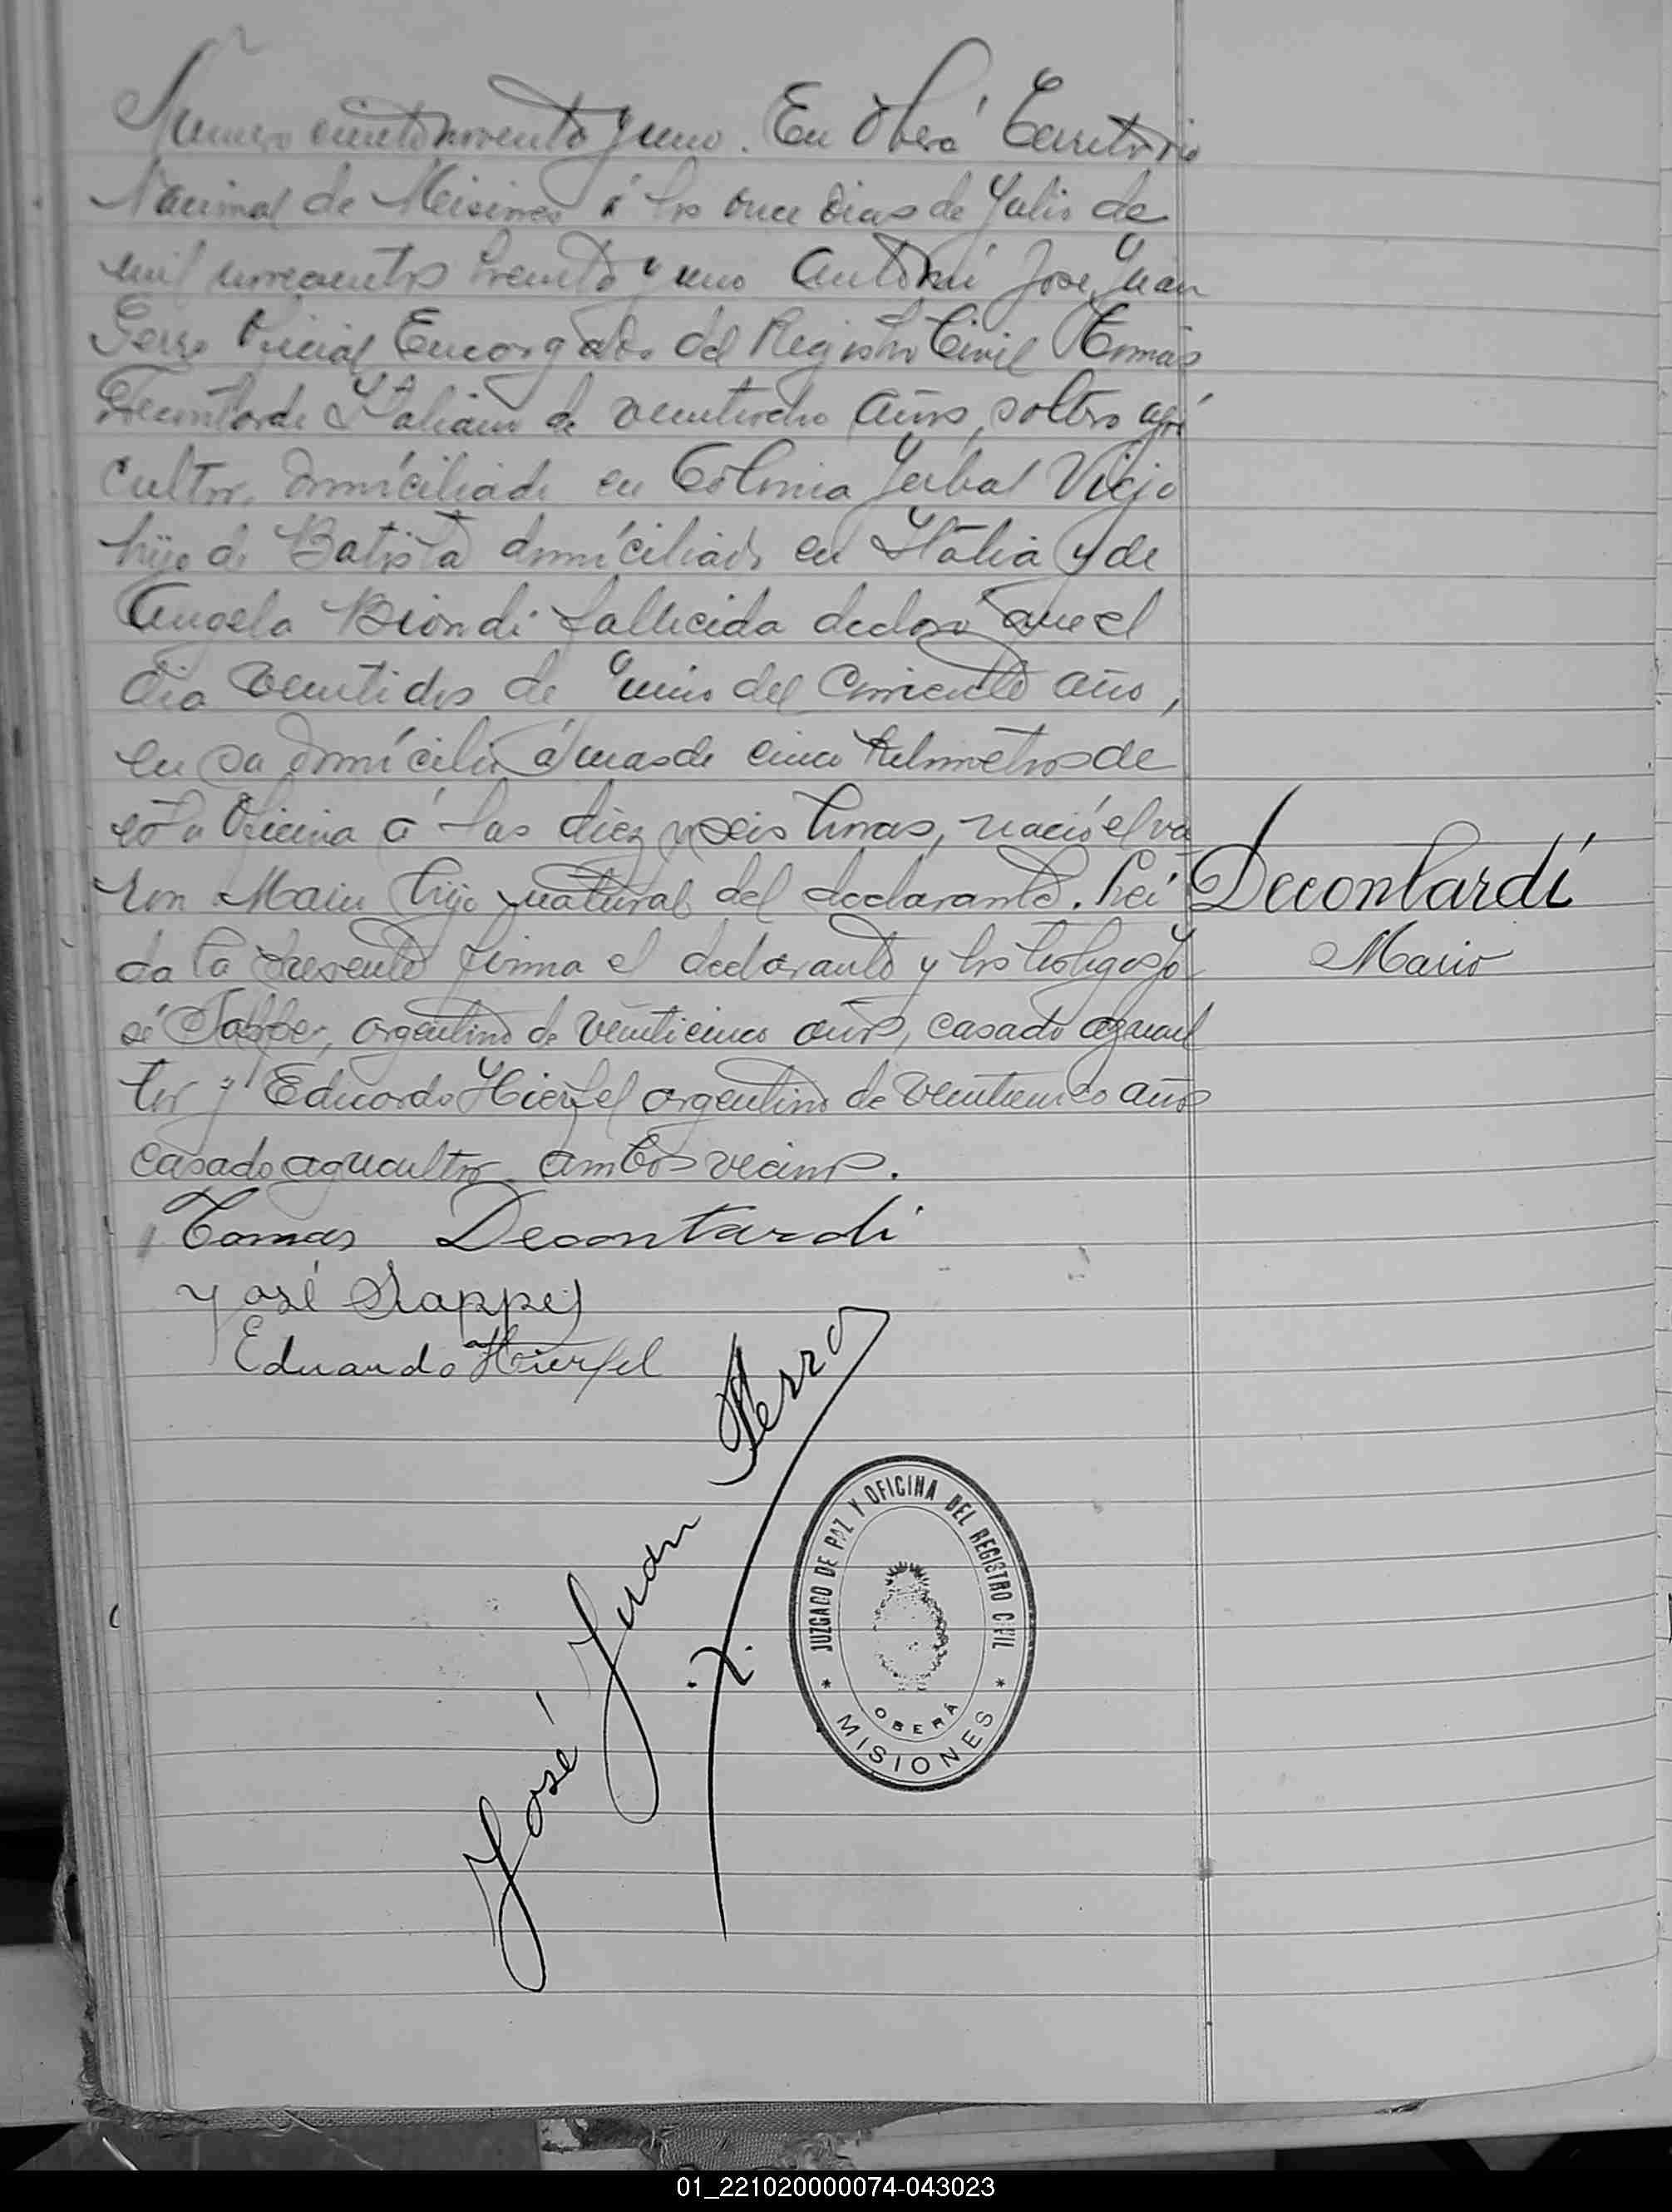 Numero ciento noventa y uno. En Oberá Territorio
Nacional de Misiones á los once dias de Julio de
mil novecientos treinta y uno ante mi Jose Juan
Serro Oficial Encargado del Registro Civil Tomás
Decontardi Italiano de veintiocho años, soltero agri
cultor, domiciliado en Colonia Yerbal Viejo
hijo de Batista domiciliado en Italia y de
Angela Biondi fallecida declaró que el
dia veintidos de Junio del corriente año,
en su domicilio á mas de cinco kilometros de
esta Oficina á las diez y seis horas, nació el va
ron Mario hijo natural del declarante. Leí
da la presente firma el declarante y los testigos Jo
sé Sappe, argentino de veinticinco años, casado agricul
tor y Eduardo Hierfel argentino de veinticinco años
casado agricultor ambos vecinos.
Decontardi
Mario
Tomas Decontardi
José Sappe
Eduardo Hierfel
José Juan Serro
JUZGADO DE PAZ Y OFICINA DEL REGISTRO CIVIL
* OBERÁ *
MISIONES
01_221020000074-043023